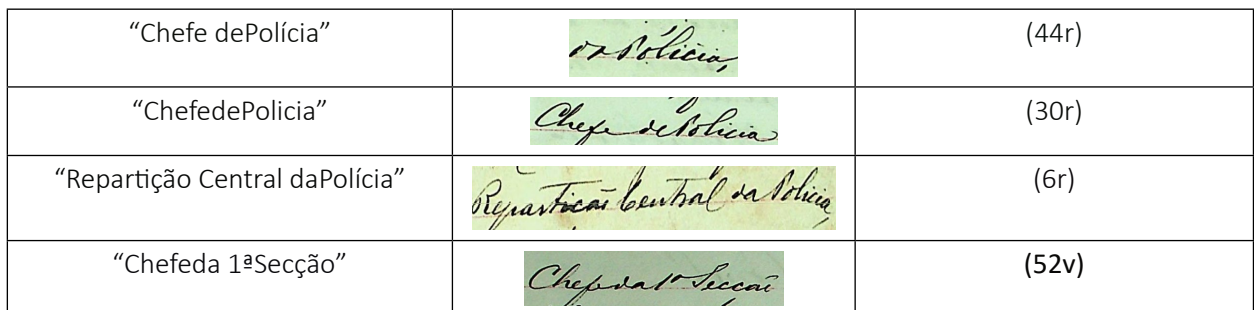 “Chefe dePolícia” da Pólicia, (44r)
“ChefedePolicia” Chefe dePolicia (30r)
“Repartição Central daPolícia” Repartição Central da Policia, (6r)
“Chefeda 1ªSecção” Chefeda 1ª Secção (52v)